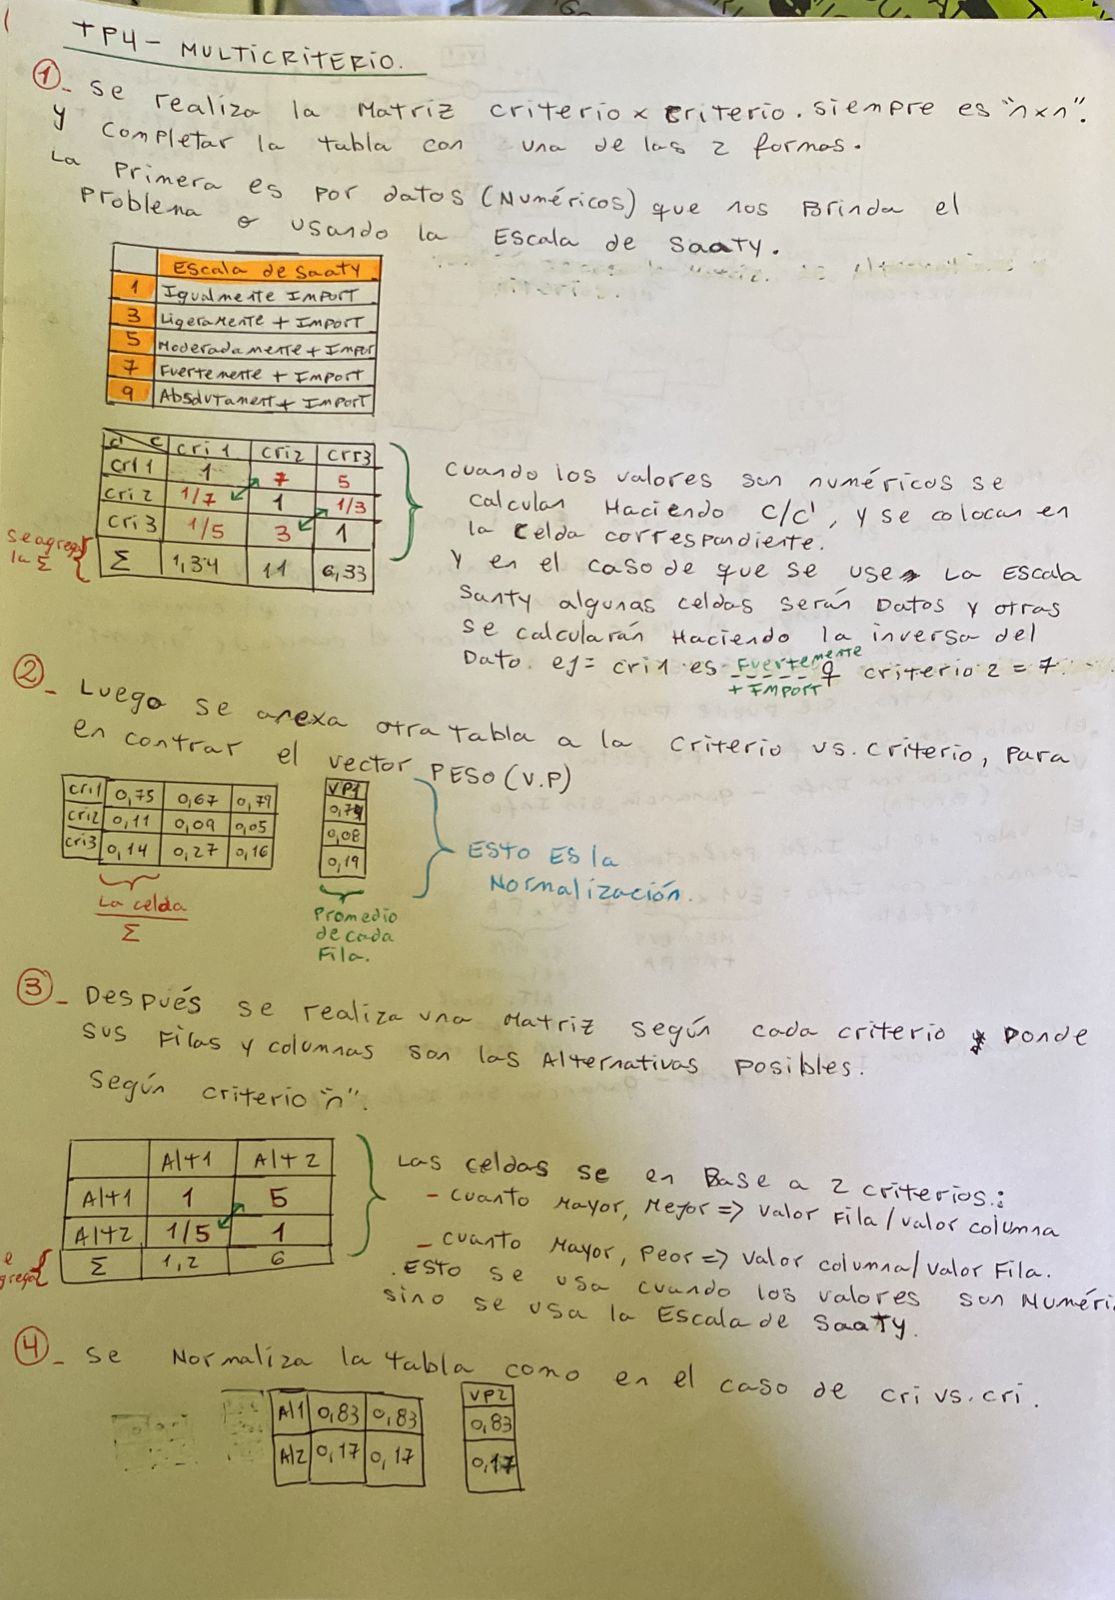 TP4 - MULTICRITERIO.
①- Se realiza la Matriz criterio x criterio. siempre es "nxn".
y completar la tabla con una de las 2 formas.
La primera es por datos (Numéricos) que nos Brinda el
problema o usando la Escala de Saaty.
Escala de Saaty
1 Igualmente Import
3 Ligeramente + Import
5 Moderadamente + Impor
7 Fuertemente + Import
9 Absolutament + Import
c' c cri 1 cri2 cri3
cri 1 1 7 5
cri 2 1/7 1 1/3
cri 3 1/5 3 1
Σ 1,34 11 6,33
se agrega
la Σ
Cuando los valores son numéricos se
calculan Haciendo c/c', y se colocan en
la celda correspondiente.
Y en el caso de que se use La Escala
Saaty algunas celdas serán Datos y otras
se calcularán Haciendo la inversa del
Dato. ej= cri 1 es Fuertemente + Import q criterio 2 = 7.
②- Luego se anexa otra tabla a la criterio vs. criterio, para
encontrar el vector PESO (V.P)
cri1 0,75 0,67 0,79
cri2 0,11 0,09 0,05
cri3 0,14 0,27 0,16
VP1
0,74
0,08
0,19
La celda
Σ
Promedio
de cada
Fila.
Esto Es la
Normalización.
③- Después se realiza una Matriz según cada criterio Donde
sus Filas y columnas son las Alternativas posibles.
según criterio "n".
Alt1 Alt2
Alt1 1 5
Alt2 1/5 1
Σ 1,2 6
Las celdas se en Base a 2 criterios:
- cuanto Mayor, Mejor => valor Fila / valor columna
- cuanto Mayor, Peor => valor columna / valor Fila.
.Esto se usa cuando los valores son Numéri
sino se usa la Escala de Saaty.
④- Se Normaliza la tabla como en el caso de cri vs. cri.
Al1 0,83 0,83
Al2 0,17 0,17
VP2
0,83
0,17